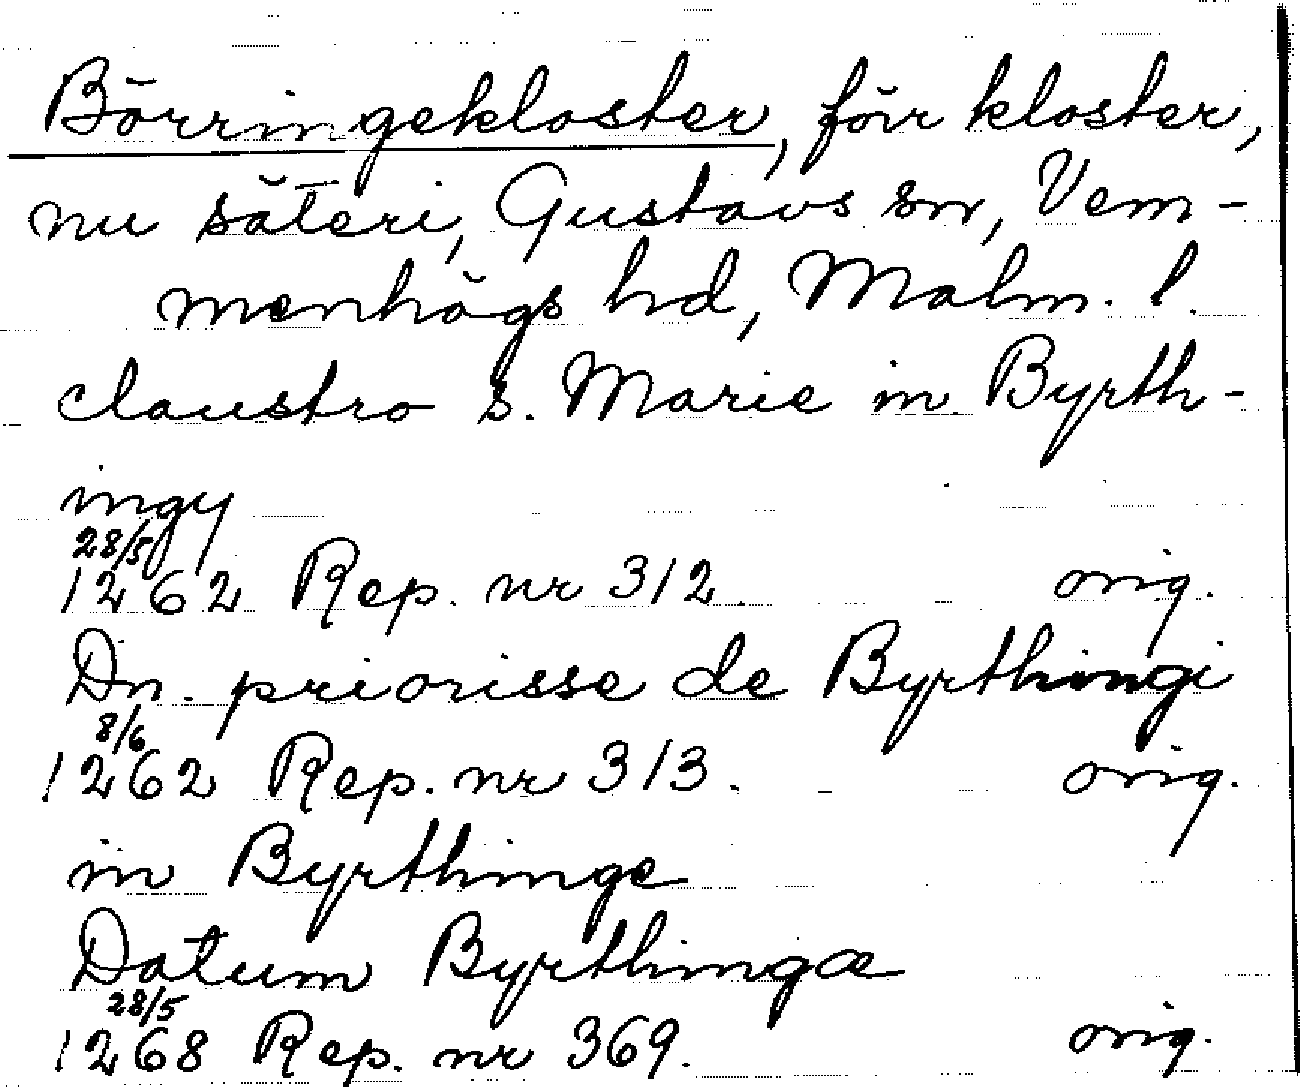 Börringekloster, förr kloster,
nu säteri, Gustavs sn, Vem-
menhögs hd, Malm. l.
claustro s. Marie in Byrth-
ingy
28/5
1262 Rep. nr 312. orig.
Dn. priorisse de Byrthingi
8/6
1262 Rep. nr 313. orig.
in Byrthinge
Datum Byrthingæ
28/5
1268 Rep. nr 369. orig.